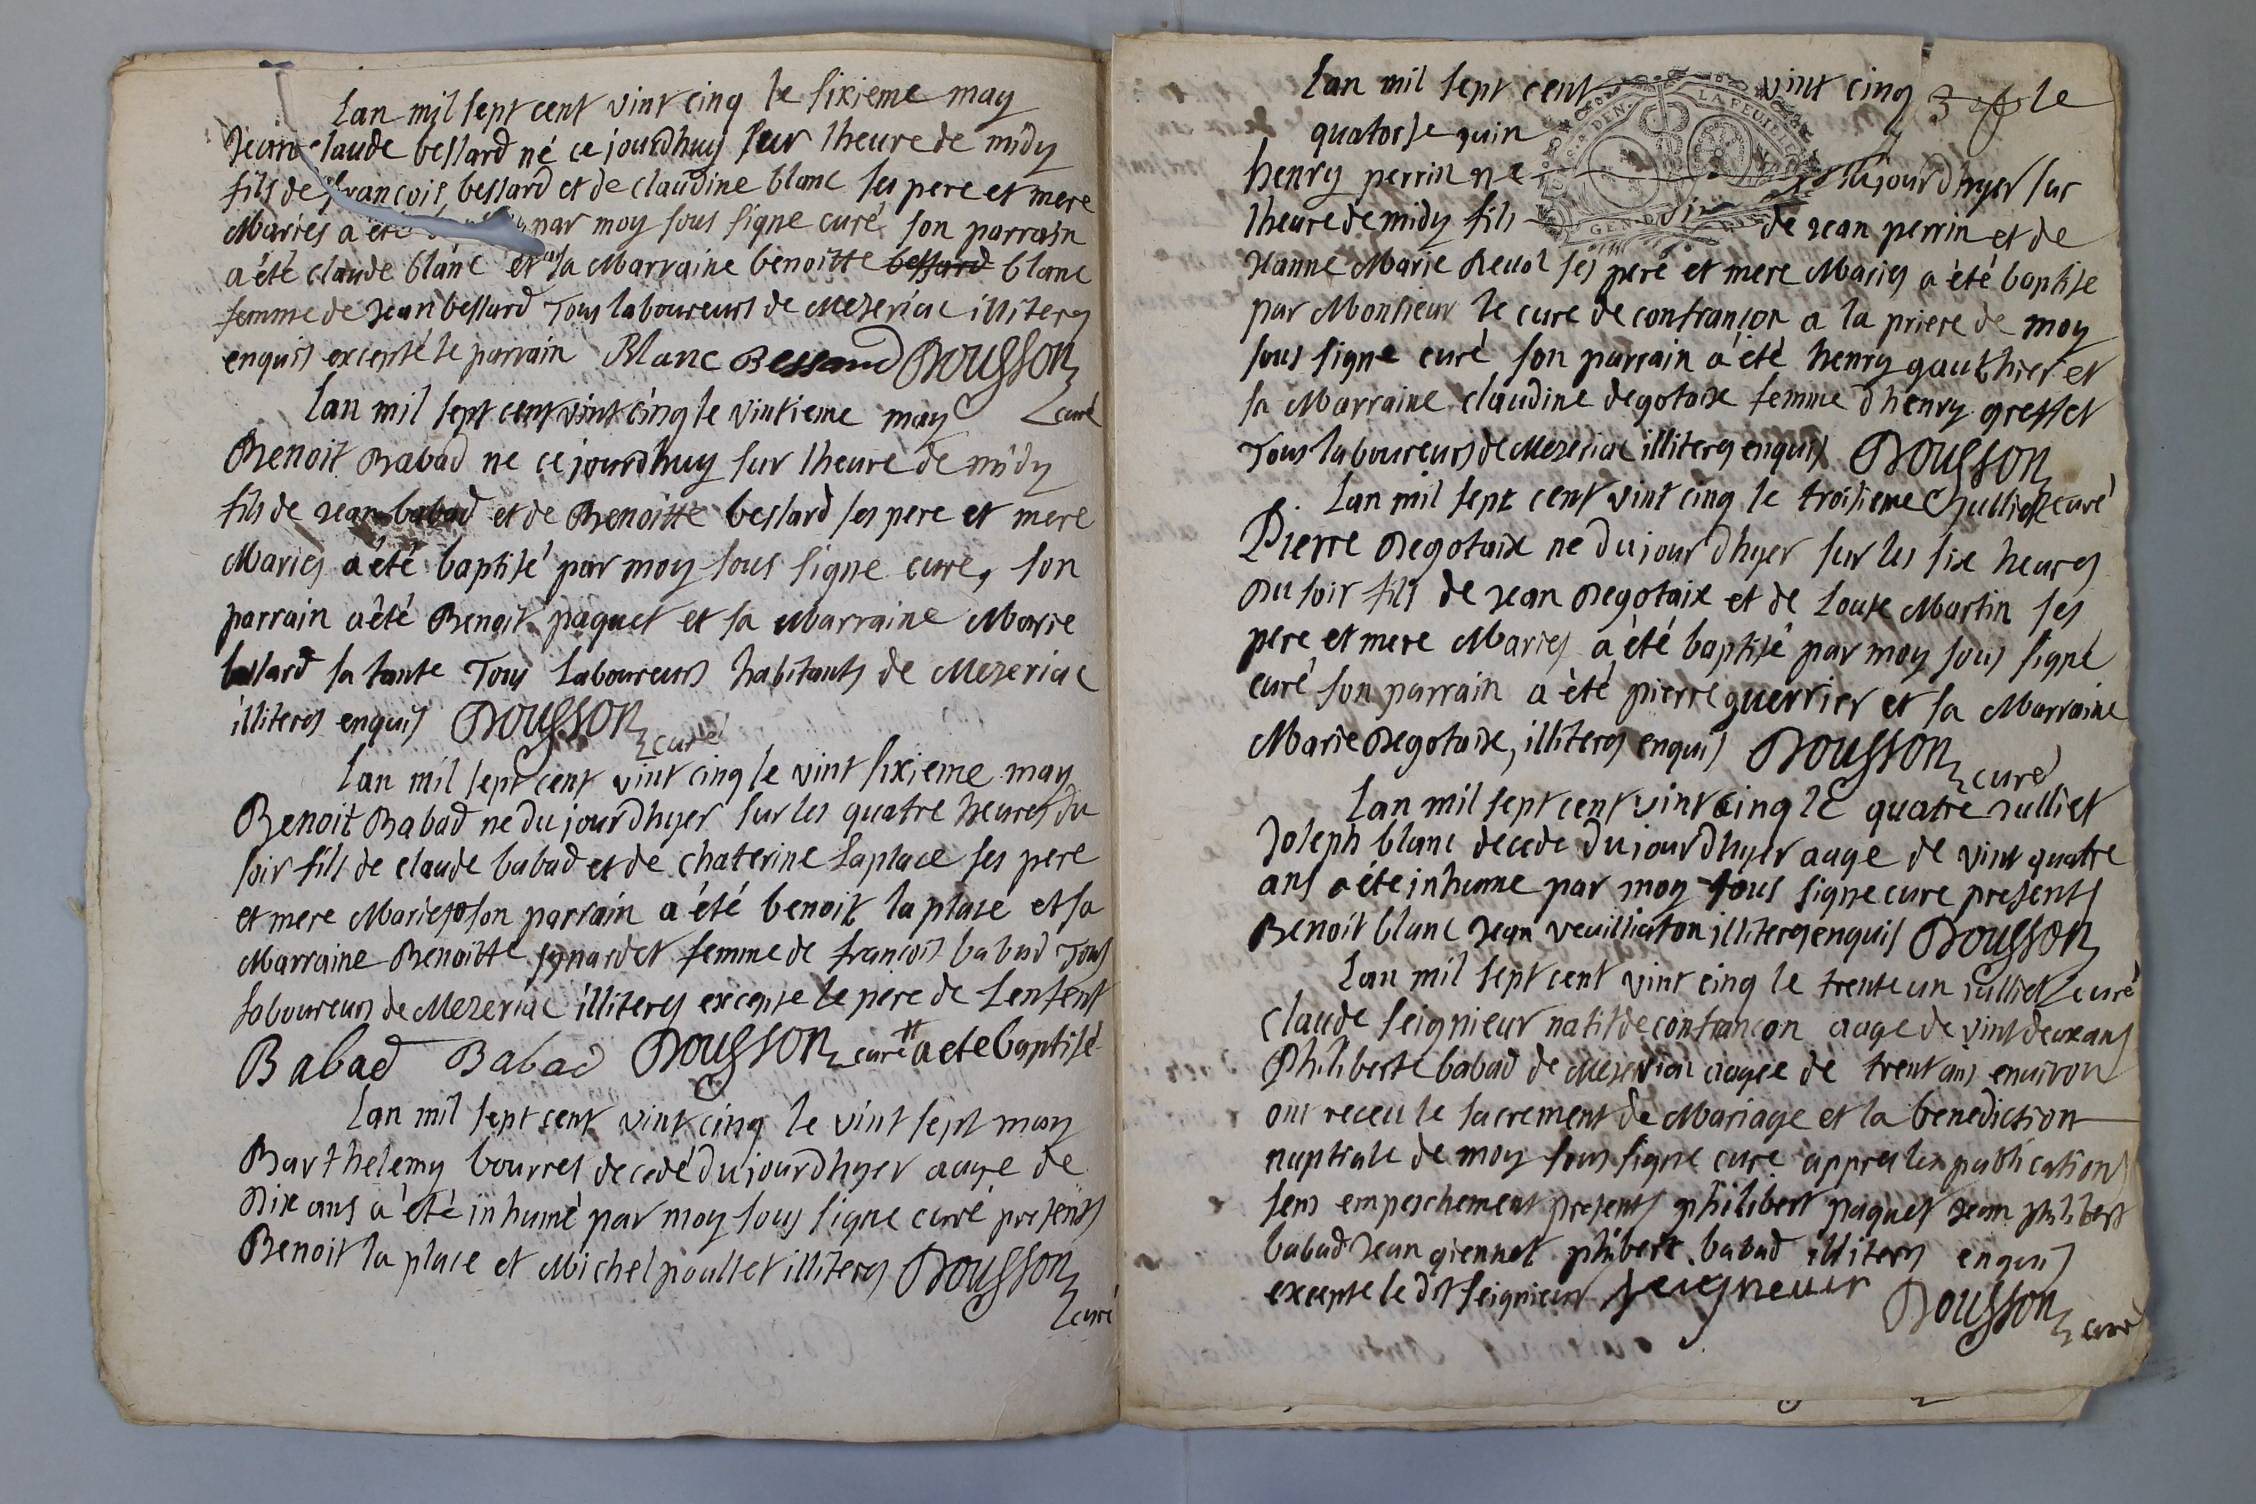 Lan mil sept cent vint cinq le sixieme may
Jean claude bessard né ce jourdhuy sur lheure de midy
fils de francois bessard et de claudine blanc ses pere et mere
Maries a été par moy sous signe curé son parrain
a été claude blanc et sa Marraine benoitte bessard blanc
femme de Jean bessard Tous laboureurs de Mezeriac illiteres
enquis excepté le parrain Blanc Bessard Dousson
curé
Lan mil sept cent vint cinq le vintieme may
Benoit Babad ne ce jourdhuy sur lheure de midy
fils de Jean babad et de Benoitte bessard ses pere et mere
Maries a été baptisé par moy sous signe curé, son
parrain a été Benoit paquet et sa Marraine Marie
bessard sa tante Tous Laboureurs habitants de Mezeriac
illiteres enquis Dousson
curé
Lan mil sept cent vint cinq le vint sixieme may
Benoit Babad ne du jour dhyer sur les quatre heures du
soir fils de claude babad et de chaterine Laplace ses pere
et mere Maries son parrain a été benoit la place et sa
Marraine Benoitte synardet femme de francois babad Tous
laboureurs de Mezeriac illiteres excepte le pere de Lenfent
Babad Babad Dousson curé # a ete baptisé
Lan mil sept cent vint cinq le vint sept may
Barthelemy bourret decedé du jour dhyer auge de
Dix ans a été inhumé par moy sous signe curé presents
Benoit la place et Michel poullet illiteres Dousson
curé
Lan mil sept cent vint cinq 3 le
quatorse quin
GEN. DEN. LA FEUILLE
henry perrin ne du jour dhyer sur
lheure de midy fils de Jean perrin et de
Jeanne Marie Revol ses pere et mere Maries a été baptise
par Monsieur le curé de confrançon a la priere de moy
sous signe curé son parrain a été henry gauthier et
sa Marraine claudine degotaix femme dhenry greffet
Tous laboureurs de Mezeriac illiteres enquis Dousson
curé
Lan mil sept cent vint cinq le troisieme Julliet
Pierre Degotaix ne du jour dhyer sur les six heures
Du soir fils de Jean Degotaix et de Louise Martin ses
pere et mere Maries a été baptisé par moy sous signé
curé son parrain a été pierre guerrier et sa Marraine
Marie Degotaix, illiteres enquis Dousson
curé
Lan mil sept cent vint cinq le quatre Julliet
Joseph blanc decede du jour dhyer auge de vint quatre
ans a été inhume par moy sous signe cure presents
Benoit blanc Jean veuilliaton illiteres enquis Dousson
curé
Lan mil sept cent vint cinq le trente un Julliet
claude seignieur natif de confrancon auge de vint deux ans
Philiberte babad de Mezeriac augee de trent ans environ
ont receu le sacrement de Mariage et la benediction
nuptiale de moy sous signe curé appres les publications
sens empeschement presents philibert paquet Jean philibert
babad Jean giennet phibert babad illiteres enquis
excepte le dit seignieur seigneuir Dousson
curé